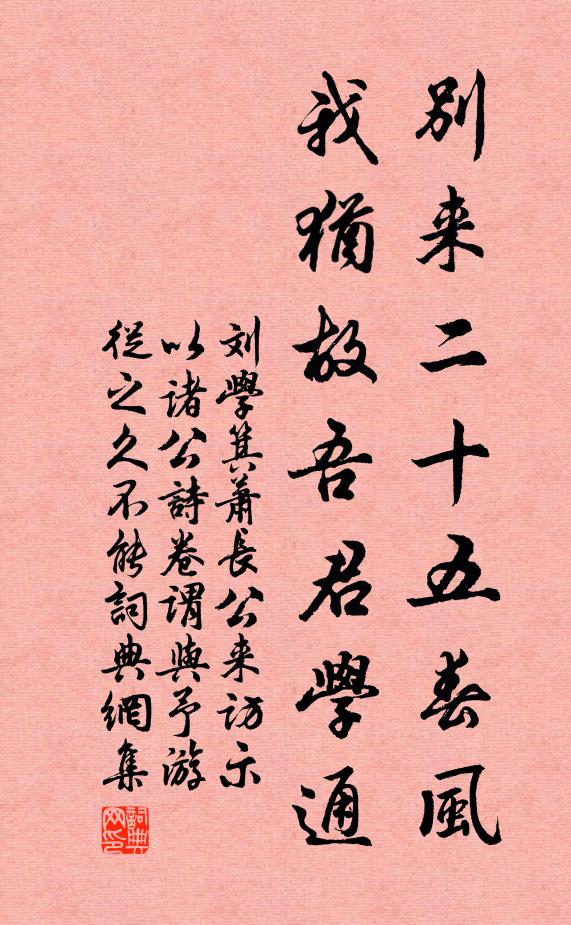 別来二十五春風
我猶故吾君學通
刘學箕蕭長公来訪示
以諸公詩卷謂與予游
從之久不能詞典網集
詞典网印